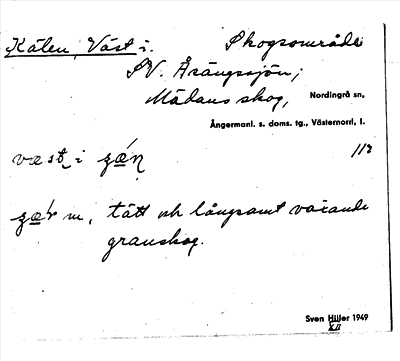 Kälen, Väst i. Skogsområde
SV. Åsängssjön;
Mädans skog, Nordingrå sn,
Ångermanl. s. doms. tg., Västernorrl. l.
væst i
112
m. tätt och långsamt växande
granskog.
Sven Hiller 1949
XII